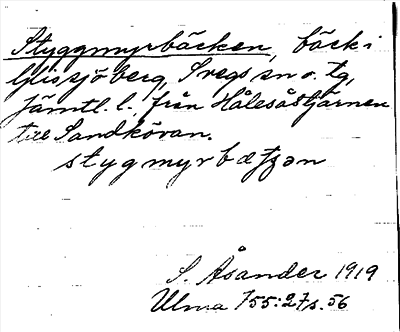 Styggmyrbäcken, bäck i
Glissjöberg, Svegs sn o. tg,
Jämtl. l., från Hålesåstjärnen
till Sandkåran.
stygmyrbætʃən
S. Åsander 1919
Ulma 755:27 s. 56